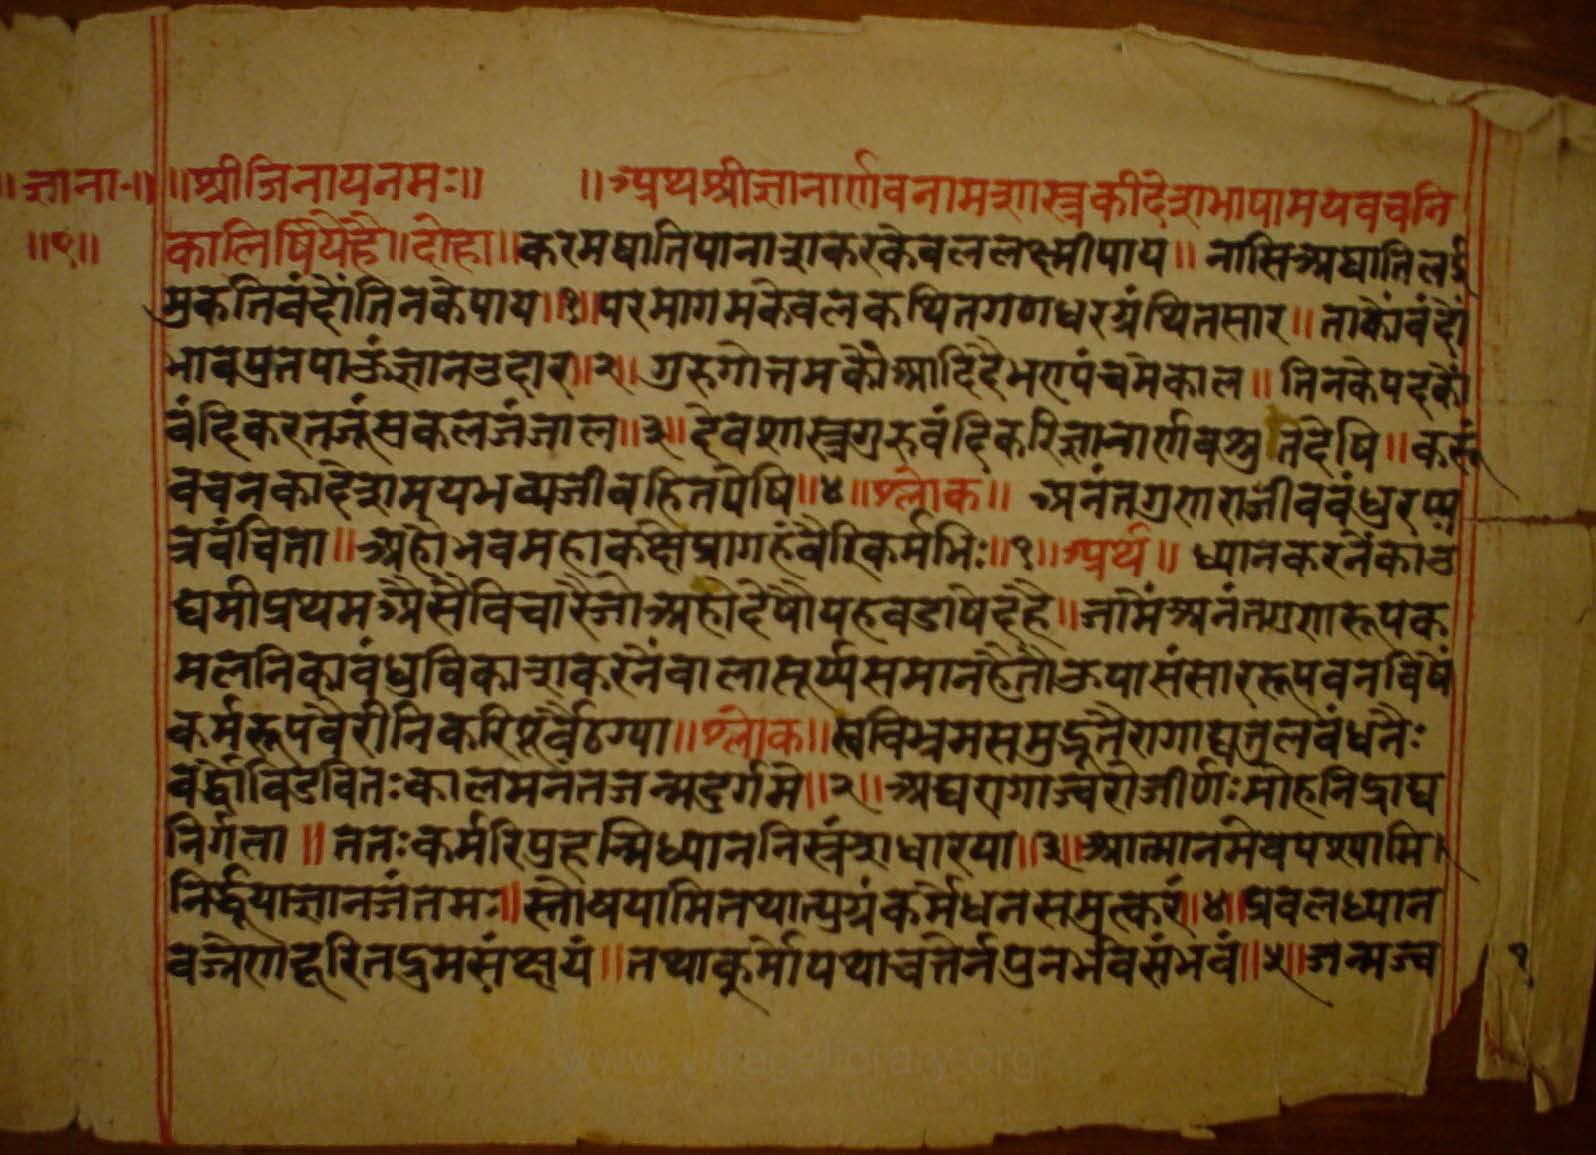 ॥ज्ञाना॰॥
॥१॥
॥श्रीजिनायनमः॥ ॥अथश्रीज्ञानार्णवनामशास्त्रकीदेशभाषामयवचनि
कालिषियेहै॥दोहा॥करमघातिपानाशकरकेवललक्ष्मीपाय॥ नासिअघातिलई
मुकतिवंदौंतिनकेपाय॥१॥परमागमकेवलकथितगणधरग्रंथितसार॥ ताकौंवंदौं
भावप्रतपाऊंज्ञानउदार॥२॥ गुरुगोत्तमकौंआदिदैभएपंचमेकाल॥ तिनकेपदकौं
वंदिकरतजूंसकलजंजाल॥३॥ देवशास्त्रगुरुवंदिकरिज्ञानार्णवश्रुतदेषि॥ करूं
वचनकादेशमयभव्यजीवहितपेषि॥४॥श्लोक॥ अनंतगुणराजीवबंधुरप्य
त्रवंचिता॥ अहोभवमहाकक्षेप्रागहंवैरिकर्मभिः॥१॥अर्थ॥ ध्यानकरनेंकाउ
द्यमीप्रथमअैसैंविचारैजोअहोदेषौयहवडाषेदहै॥जोमैंअनंतगुणरूपक
मलनिकाबंधुविकाशकरनेंवालासूर्य्यसमानहैतौऊयासंसाररूपवनविषैं
कर्मरूपवैरीनिकरिपूर्वैठग्या॥श्लोक॥स्वविभ्रमसमुद्भूतैरागाद्यतुलबंधनैः
बर्द्धोविडंवितःकालमनंतंजन्मदुर्गमे॥२॥अद्यरागाज्वरोजीर्णःमोहनिद्राद्य
निर्गता॥ ततःकर्मरिपुंहन्मिध्याननिस्त्रंशधारया॥३॥आत्मानमेवपश्यामि।
निर्द्धूयाज्ञानजंतमः॥स्तोषयामितथात्युग्रंकर्मेंधनसमुत्करं॥४॥प्रबलध्यान
वज्रेणदूरितद्रुमसंक्षयं॥तथाकुर्मोयथाचतेर्नपुनर्भवसंभवं॥५॥जन्मज्व
१
www.vitragelibrary.org